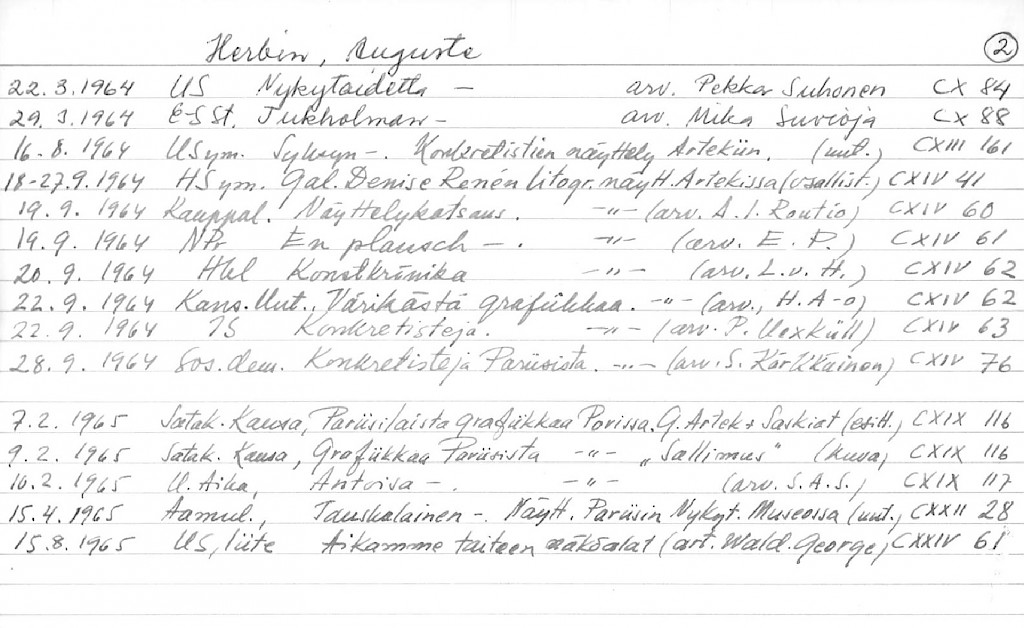 Herbin, Auguste ②
22.3.1964 US Nykytaidetta — arv. Pekka Suhonen CX 84
29.3.1964 E-S St. Tukholman — arv. Mika Suvioja CX 88
16.8.1964 USym. Syksyn —. Konkretistien näyttely Artekiin. (uut.) CXIII 161
18-27.9.1964 HSym. Gal. Denise Renén litogr. näytt. Artekissa (osallist.) CXIV 41
19.9.1964 Kauppal. Näyttelykatsaus. —"— (arv. A.I. Routio) CXIV 60
19.9.1964 NPr En plausch —. —"— (arv. E.P.) CXIV 61
20.9.1964 Hbl Konstkrönika —"— (arv. L.v.H.) CXIV 62
22.9.1964 Kans.Uut., Värikästä grafiikkaa. —"— (arv., H.A-o) CXIV 62
22.9.1964 IS Konkretisteja. —"— (arv. P. Uexküll) CXIV 63
28.9.1964 Sos.dem. Konkretisteja Pariisista. —"— (arv. S. Kärkkäinen) CXIV 76
7.2.1965 Satak. Kansa, Pariisilaista grafiikkaa Porissa. G. Artek + Saskiat (esitt.) CXIX 116
9.2.1965 Satak. Kansa, Grafiikkaa Pariisista —"— „Sallimus" (kuva) CXIX 116
10.2.1965 U. Aika, Antoisa —. —"— (arv. S.A.S.) CXIX 117
15.4.1965 Aamul., Tanskalainen —. Näytt. Pariisin Nykyt. Museossa (uut.) CXXII 28
15.8.1965 US, liite Aikamme taiteen näköalat (art. Wald. George) CXXIV 61